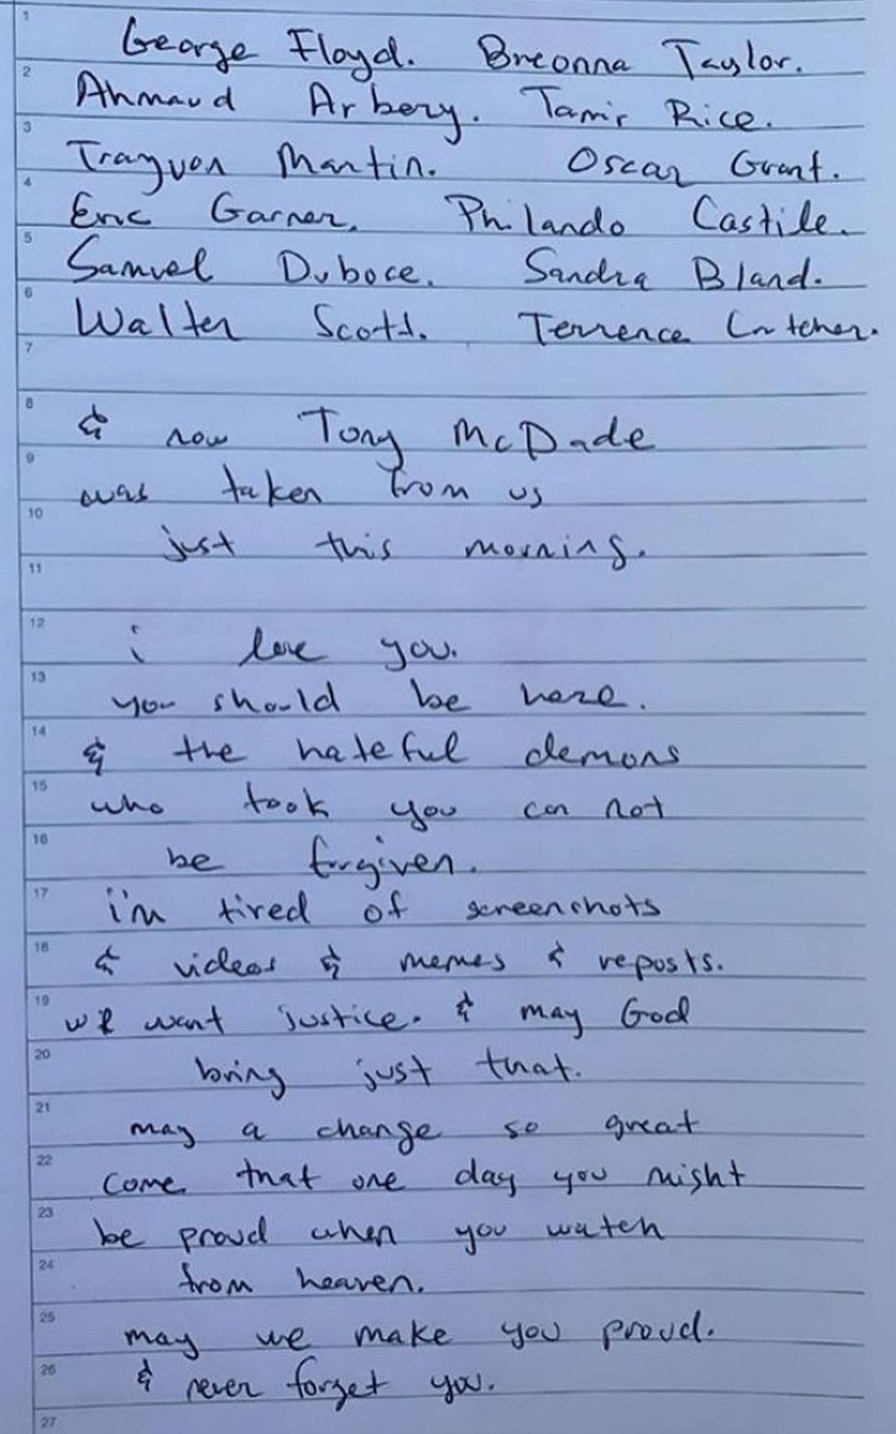 1
George Floyd. Breonna Taylor.
2
Ahmaud Arbery. Tamir Rice.
3
Trayvon Martin. Oscar Grant.
4
Eric Garner. Philando Castile.
5
Samuel Duboce. Sandra Bland.
6
Walter Scott. Terrence Crutcher.
7
8
& now Tony McDade
9
was taken from us
10
just this morning.
11
12
i love you.
13
you should be here.
14
& the hateful demons
15
who took you can not
16
be forgiven.
17
i'm tired of screenshots
18
& videos & memes & reposts.
19
we want justice. & may God
20
bring just that.
21
may a change so great
22
come that one day you might
23
be proud when you watch
24
from heaven.
25
may we make you proud.
26
& never forget you.
27